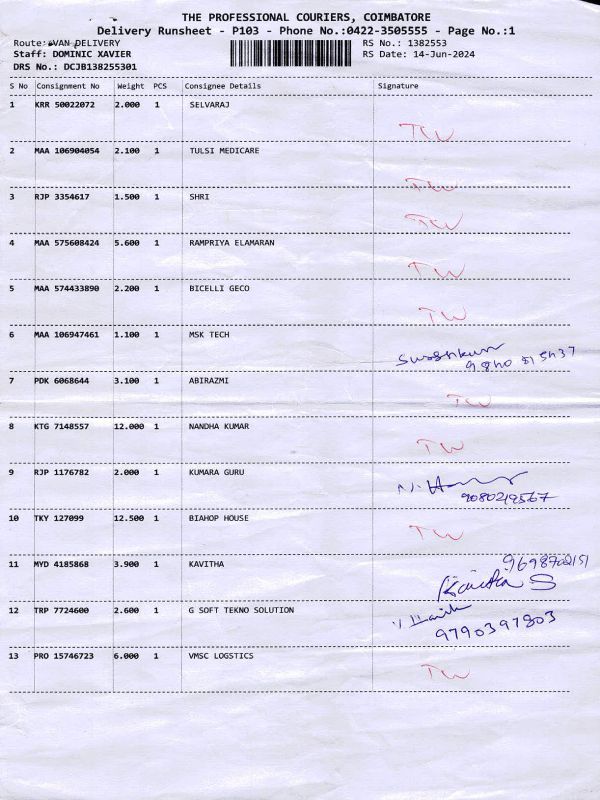 THE PROFESSIONAL COURIERS, COIMBATORE
Delivery Runsheet - P103 - Phone No.:0422-3505555 - Page No.:1
Route: VAN DELIVERY RS No.: 1382553
Staff: DOMINIC XAVIER RS Date: 14-Jun-2024
DRS No.: DCJB138255301
S No Consignment No Weight PCS Consignee Details Signature
1 KRR 50022072 2.000 1 SELVARAJ
TW
2 MAA 106904054 2.100 1 TULSI MEDICARE
TW
3 RJP 3354617 1.500 1 SHRI
TW
4 MAA 575608424 5.600 1 RAMPRIYA ELAMARAN
TW
5 MAA 574433890 2.200 1 BICELLI GECO
TW
6 MAA 106947461 1.100 1 MSK TECH
7 PDK 6068644 3.100 1 ABIRAZMI
TW
8 KTG 7148557 12.000 1 NANDHA KUMAR
TW
9 RJP 1176782 2.000 1 KUMARA GURU
9080219567
10 TKY 127099 12.500 1 BIAHOP HOUSE
TW
11 MYD 4185868 3.900 1 KAVITHA
9698702151
Kavitha S
12 TRP 7724600 2.600 1 G SOFT TEKNO SOLUTION
9790397803
13 PRO 15746723 6.000 1 VMSC LOGSTICS
TW